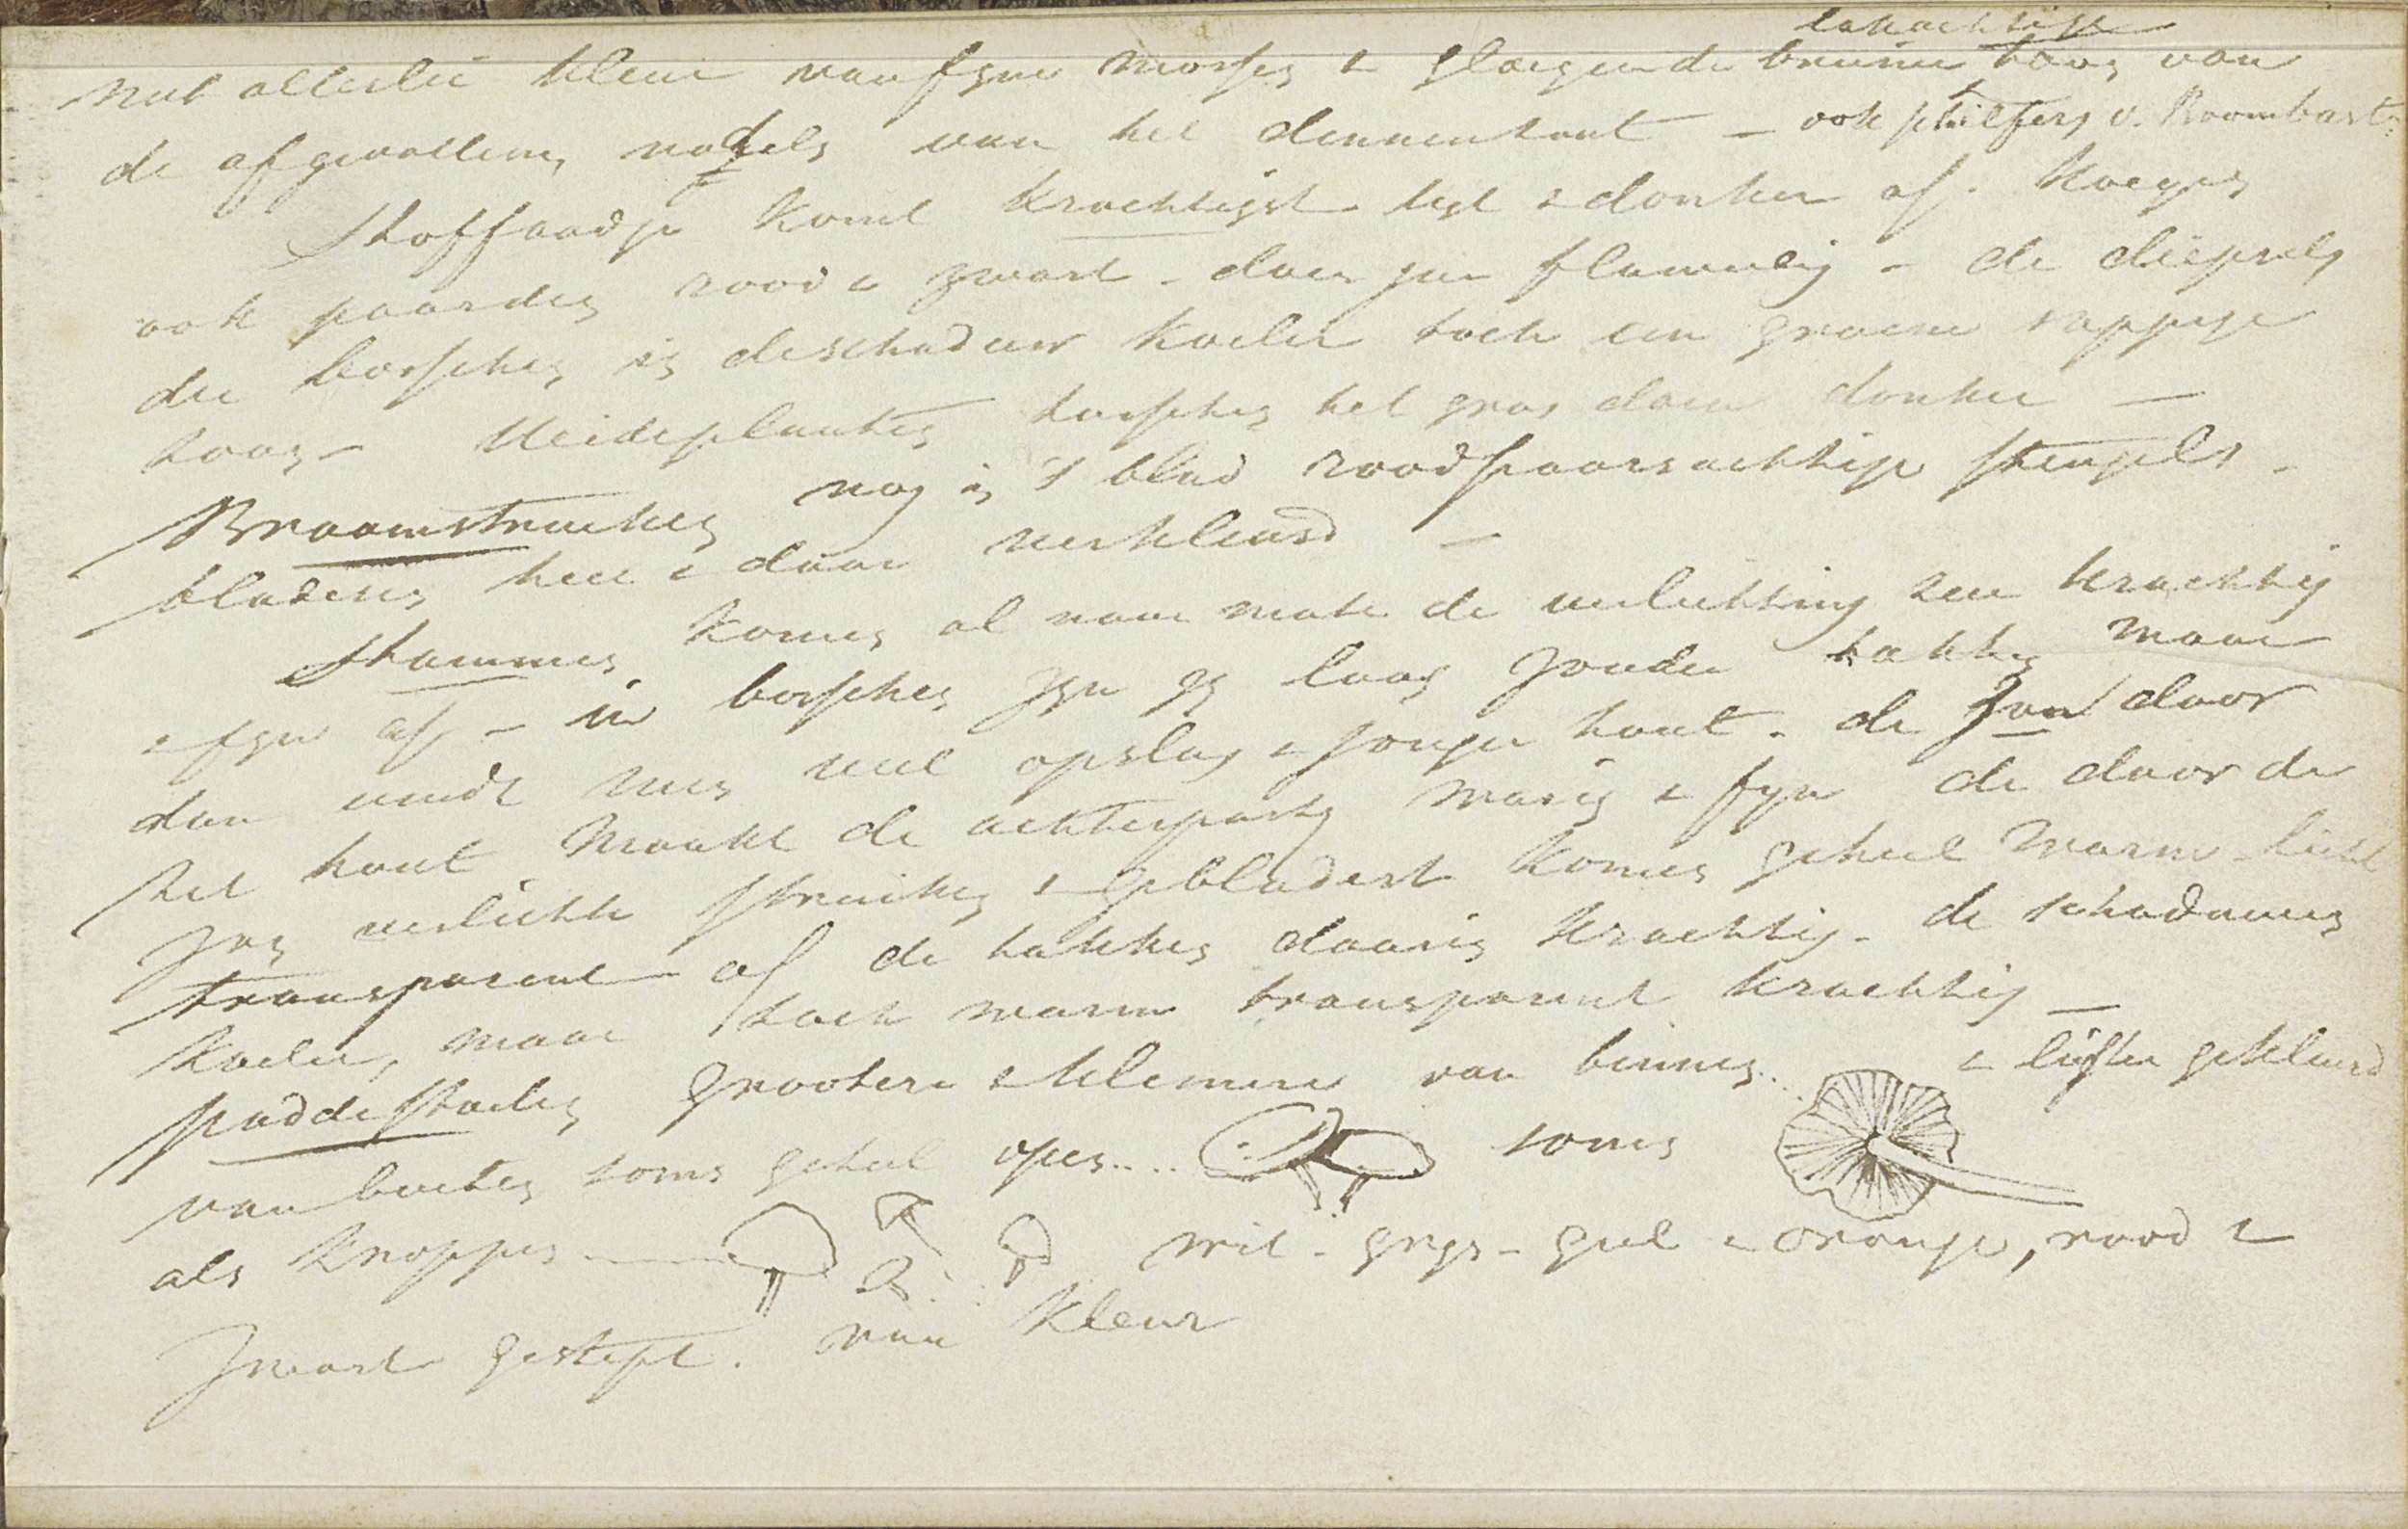 lakachtige
met allerlei kleur van fyne mosjes & gloeyende bruine toon van
de afgevallene nadels van het dennenhout – ook schilfers v. Boombast.
Stoffaadje komt krachtigst ligt & donker af. Koeyen
ook paarden rood & zwart – door zon flammig – de diepsels
der bosches in de schaduw koeler toch een groene sappige
toon – Heideplantes tusschen het gras door donker –
Braamstruikes nog in 't blad roodpaarsachtige stengels –
bladeren hier & daar verkleurd –
Stammes komen al naar mate de verlichting zeer krachtig
& fyn af – in bosches zyn ze laag zonder takken maar
dan vindt men veel opslag & jonger hout. de zon door
het hout maakt de achterparty wasig & fyn de door de
zon verlichte struikes & gebladert komen geheel warm licht
transparent af de takkes daarin krachtig – de schaduwen
koeler, maar toch warm transparent krachtig –
paddestoeles grootere & kleinere van binnen .. & lichter gekleurd
van buiten soms geheel open .... soms
als knoppes wit – grys – geel & oranje, rood &
zwart gestipt. van kleur